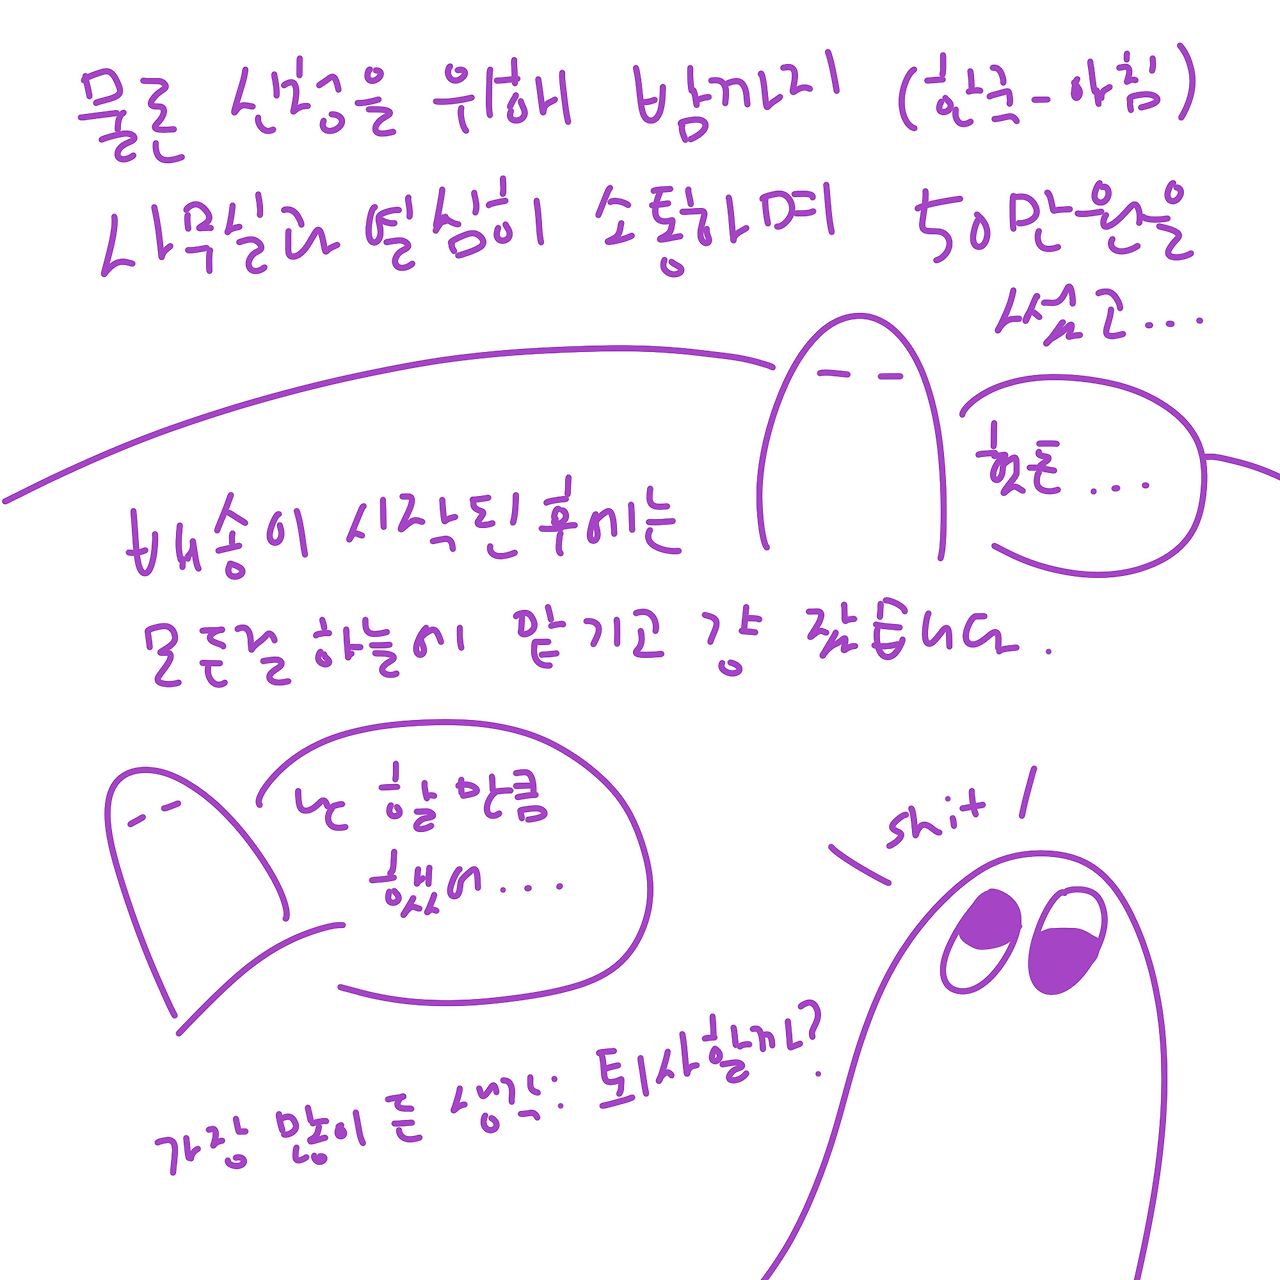 물론 신청을 위해 밤까지 (한국-아침)
사무실과 열심히 소통하며 50만원을
썼고...
헛돈...
배송이 시작된 후에는
모든걸 하늘에 맡기고 걍 잤습니다.
난 할만큼
했어...
shit!
가장 많이 든 생각: 퇴사할까?